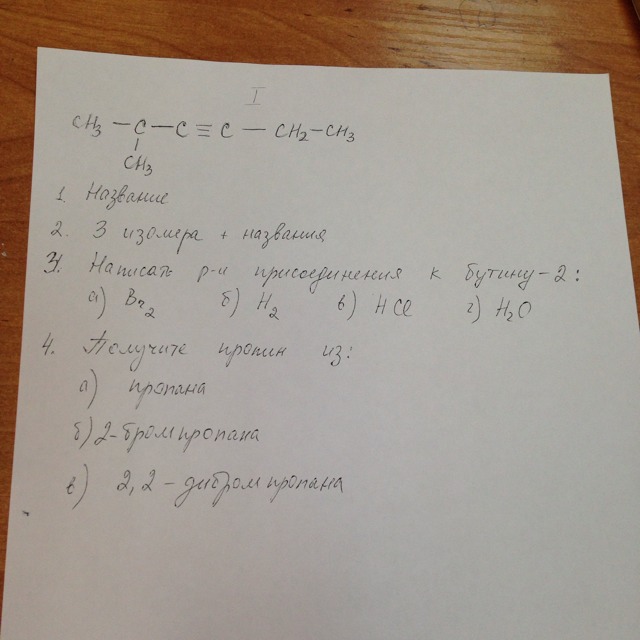 I
CH3 — C — C ≡ C — CH2 — CH3
CH3
1. Название
2. 3 изомера + названия
3. Написать р-и присоединения к бутину-2:
а) Br2 б) H2 в) HCl г) H2O
4. Получите пропин из:
а) пропана
б) 2-бромпропана
в) 2,2-дибромпропана